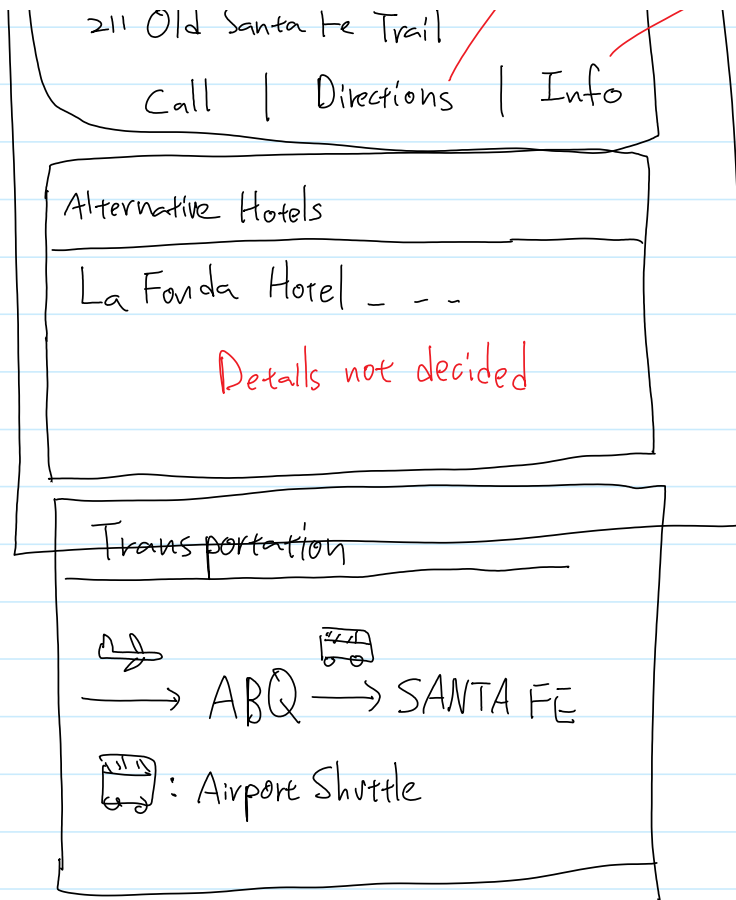 211 Old Santa Fe Trail
Call | Directions | Info
Alternative Hotels
La Fonda Hotel _ _ _
Details not decided
Transportation
ABQ SANTA FE
: Airport Shuttle